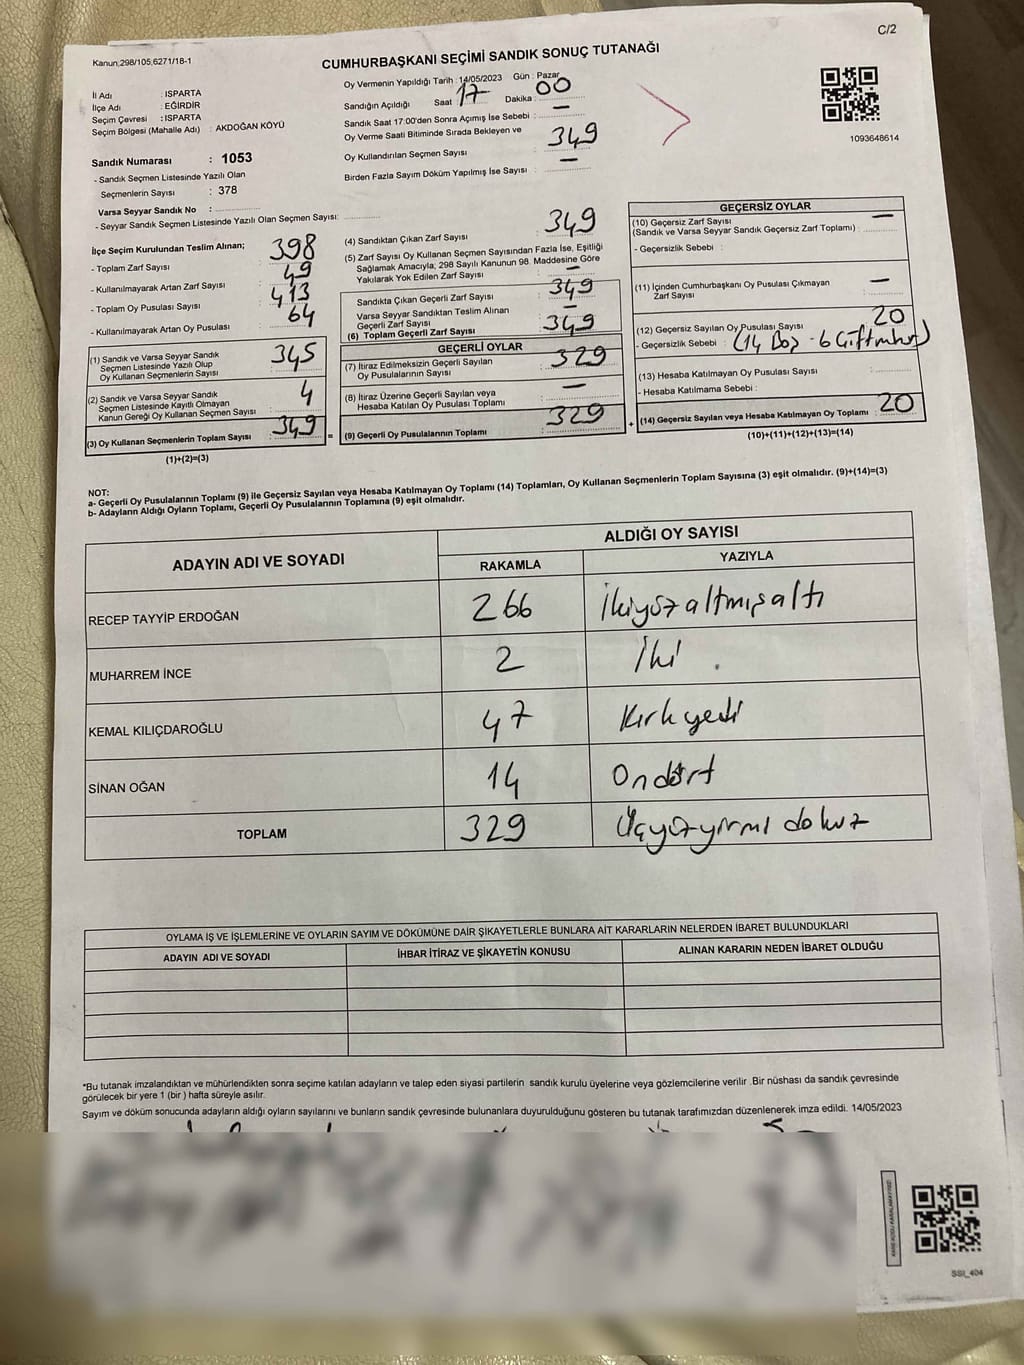 C/2
Kanun;298/105,6271/18-1
CUMHURBAŞKANI SEÇİMİ SANDIK SONUÇ TUTANAĞI
İl Adı : ISPARTA
İlçe Adı : EĞİRDİR
Seçim Çevresi : ISPARTA
Seçim Bölgesi (Mahalle Adı) : AKDOĞAN KÖYÜ
Sandık Numarası : 1053
- Sandık Seçmen Listesinde Yazılı Olan
Seçmenlerin Sayısı : 378
Varsa Seyyar Sandık No :
- Seyyar Sandık Seçmen Listesinde Yazılı Olan Seçmen Sayısı:
Oy Vermenin Yapıldığı Tarih : 14/05/2023 Gün : Pazar
Sandığın Açıldığı Saat : 17 Dakika : 00
Sandık Saat 17:00'den Sonra Açımış İse Sebebi : —
Oy Verme Saati Bitiminde Sırada Bekleyen ve
Oy Kullandırılan Seçmen Sayısı : 349
Birden Fazla Sayım Döküm Yapılmış İse Sayısı : —
1093648614
İlçe Seçim Kurulundan Teslim Alınan;
- Toplam Zarf Sayısı : 398
- Kullanılmayarak Artan Zarf Sayısı : 49
- Toplam Oy Pusulası Sayısı : 413
- Kullanılmayarak Artan Oy Pusulası : 64
(1) Sandık ve Varsa Seyyar Sandık
Seçmen Listesinde Yazılı Olup
Oy Kullanan Seçmenlerin Sayısı : 345
(2) Sandık ve Varsa Seyyar Sandık
Seçmen Listesinde Kayıtlı Olmayan
Kanun Gereği Oy Kullanan Seçmen Sayısı : 4
(3) Oy Kullanan Seçmenlerin Toplam Sayısı : 349
(1)+(2)=(3)
=
(4) Sandıktan Çıkan Zarf Sayısı : 349
(5) Zarf Sayısı Oy Kullanan Seçmen Sayısından Fazla İse, Eşitliği
Sağlamak Amacıyla, 298 Sayılı Kanunun 98. Maddesine Göre
Yakılarak Yok Edilen Zarf Sayısı : —
Sandıkta Çıkan Geçerli Zarf Sayısı : 349
Varsa Seyyar Sandıktan Teslim Alınan
Geçerli Zarf Sayısı : —
(6) Toplam Geçerli Zarf Sayısı : 349
GEÇERLİ OYLAR
(7) İtiraz Edilmeksizin Geçerli Sayılan
Oy Pusulalarının Sayısı : 329
(8) İtiraz Üzerine Geçerli Sayılan veya
Hesaba Katılan Oy Pusulası Toplamı : —
(9) Geçerli Oy Pusulalarının Toplamı : 329
+
GEÇERSİZ OYLAR
(10) Geçersiz Zarf Sayısı
(Sandık ve Varsa Seyyar Sandık Geçersiz Zarf Toplamı) : —
- Geçersizlik Sebebi :
(11) İçinden Cumhurbaşkanı Oy Pusulası Çıkmayan
Zarf Sayısı : —
(12) Geçersiz Sayılan Oy Pusulası Sayısı : 20
- Geçersizlik Sebebi : (14 Boş - 6 Çiftmühür)
(13) Hesaba Katılmayan Oy Pusulası Sayısı :
- Hesaba Katılmama Sebebi :
(14) Geçersiz Sayılan veya Hesaba Katılmayan Oy Toplamı : 20
(10)+(11)+(12)+(13)=(14)
NOT:
a- Geçerli Oy Pusulalarının Toplamı (9) ile Geçersiz Sayılan veya Hesaba Katılmayan Oy Toplamı (14) Toplamları, Oy Kullanan Seçmenlerin Toplam Sayısına (3) eşit olmalıdır. (9)+(14)=(3)
b- Adayların Aldığı Oyların Toplamı, Geçerli Oy Pusulalarının Toplamına (9) eşit olmalıdır.
ADAYIN ADI VE SOYADI
ALDIĞI OY SAYISI
RAKAMLA YAZIYLA
RECEP TAYYİP ERDOĞAN 266 İkiyüzaltmışaltı
MUHARREM İNCE 2 İki .
KEMAL KILIÇDAROĞLU 47 Kırkyedi
SİNAN OĞAN 14 Ondört
TOPLAM 329 Üçyüzyirmi dokuz
OYLAMA İŞ VE İŞLEMLERİNE VE OYLARIN SAYIM VE DÖKÜMÜNE DAİR ŞİKAYETLERLE BUNLARA AİT KARARLARIN NELERDEN İBARET BULUNDUKLARI
ADAYIN ADI VE SOYADI İHBAR İTİRAZ VE ŞİKAYETİN KONUSU ALINAN KARARIN NEDEN İBARET OLDUĞU
*Bu tutanak imzalandıktan ve mühürlendikten sonra seçime katılan adayların ve talep eden siyasi partilerin sandık kurulu üyelerine veya gözlemcilerine verilir .Bir nüshası da sandık çevresinde
görülecek bir yere 1 (bir ) hafta süreyle asılır.
Sayım ve döküm sonucunda adayların aldığı oyların sayılarını ve bunların sandık çevresinde bulunanlara duyurulduğunu gösteren bu tutanak tarafımızdan düzenlenerek imza edildi. 14/05/2023
SSI_404